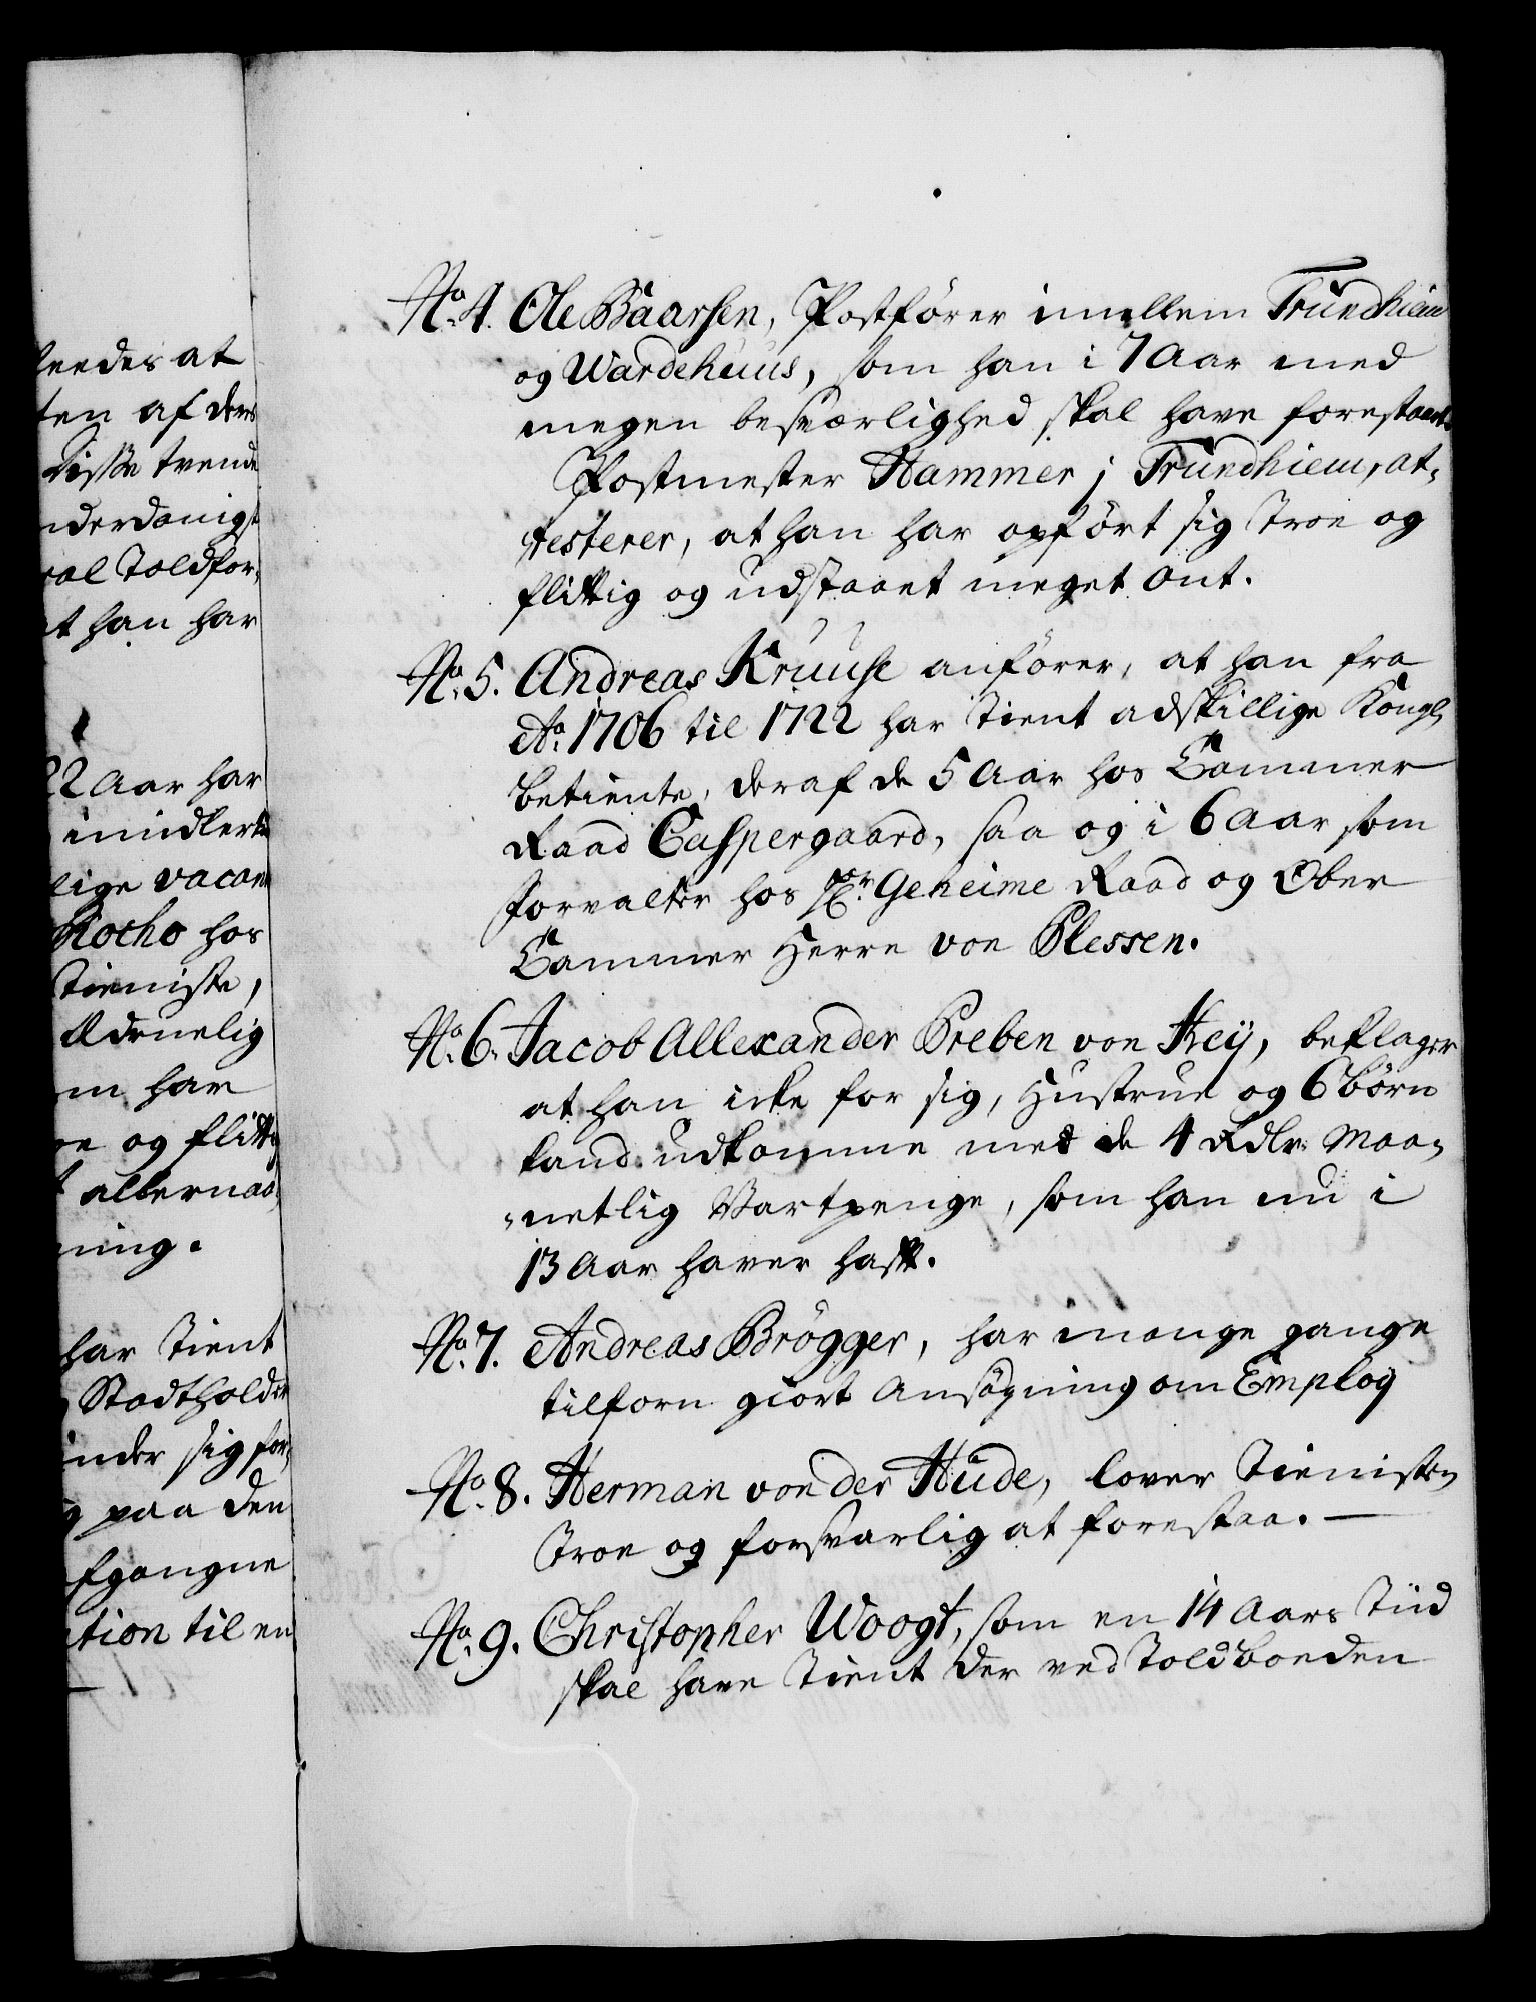 leedes at
ten af ders
disse trende
nderdanigst
ral Toldfor-
at han har
22 Aar har
imidlerti
lige vacan
Rocho hos
Tieniste,
Ædruelig
m har
oe og flittig
t allernaa-
ning.
har tient
Stadtholder
inder sig for-
g paa den
afgangne
ation til en
No. 4. Ole Baarsen, Postfører imellem Trundhiem
og Wardehuus, som han i 7 Aar med
megen besværlighed skal have forestaaet.
Postmester Hammer j Trundhiem, at-
testerer, at han har opført sig troe og
flittig og udstaaet meget ont.
No. 5. Andreas Kruuse anfører, at han fra
Ao. 1706 til 1722 har tient adskillige Kongl.
betiente, deraf de 5 Aar hos Cammer
Raad Caspergaard, saa og i 6 Aar som
forvalter hos Hr. Geheime Raad og Ober
Cammer Herre von Plessen.
No. 6. Jacob Allexander Preben von Key, beklager
at han icke for sig, Hustrue og 6 børn
kand udkomme med de 4 Rdlr. Maa-
netlig Vartpenge, som han nu i
13 Aar haver haft.
No. 7. Andreas Brøgger, har mange gange
tilforn giort Ansøgning om Emploÿ
No. 8. Herman von der Hude, lover Tienisten
troe og forsvarlig at forestaa. —
No. 9. Christopher Woogt, som en 14 Aars Tiid
skal have tient der ved Toldboeden